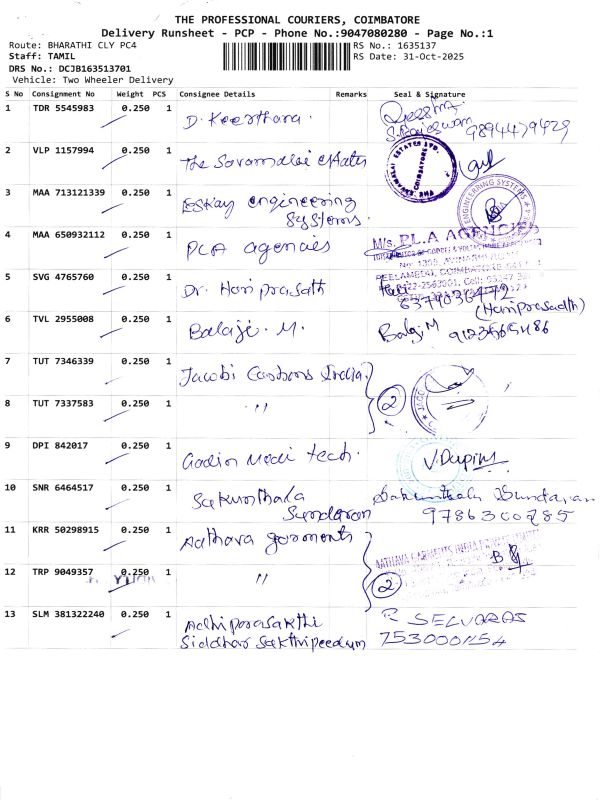 THE PROFESSIONAL COURIERS, COIMBATORE
Delivery Runsheet - PCP - Phone No.:9047080280 - Page No.:1
Route: BHARATHI CLY PC4
RS No.: 1635137
Staff: TAMIL
RS Date: 31-Oct-2025
DRS No.: DCJB163513701
Vehicle: Two Wheeler Delivery
S No Consignment No Weight PCS Consignee Details Remarks Seal & Signature
1 TDR 5545983 0.250 1 D. Keerthana.
9894479429
2 VLP 1157994 0.250 1 The Savamalai estates
3 MAA 713121339 0.250 1 Eskay engineering
Systems.
4 MAA 650932112 0.250 1 PLA agencies
M/s. P.L.A AGENCIES
5 SVG 4765760 0.250 1 Dr. Hariprasath
(Hariprasadth)
6 TVL 2955008 0.250 1 Balaji. M. Balaji M
7 TUT 7346339 0.250 1 Jacobi Carbons India
2
8 TUT 7337583 0.250 1 "
9 DPI 842017 0.250 1 Godin Medi tech.
10 SNR 6464517 0.250 1 Sakunthala
Sundaram
Sakunthala Sundaram
9786300285
11 KRR 50298915 0.250 1 Aathava garments
12 TRP 9049357 0.250 1 "
2
13 SLM 381322240 0.250 1 Adhiparasakthi
Siddhar Sakthipeedum
R SELVARAS
7530001154